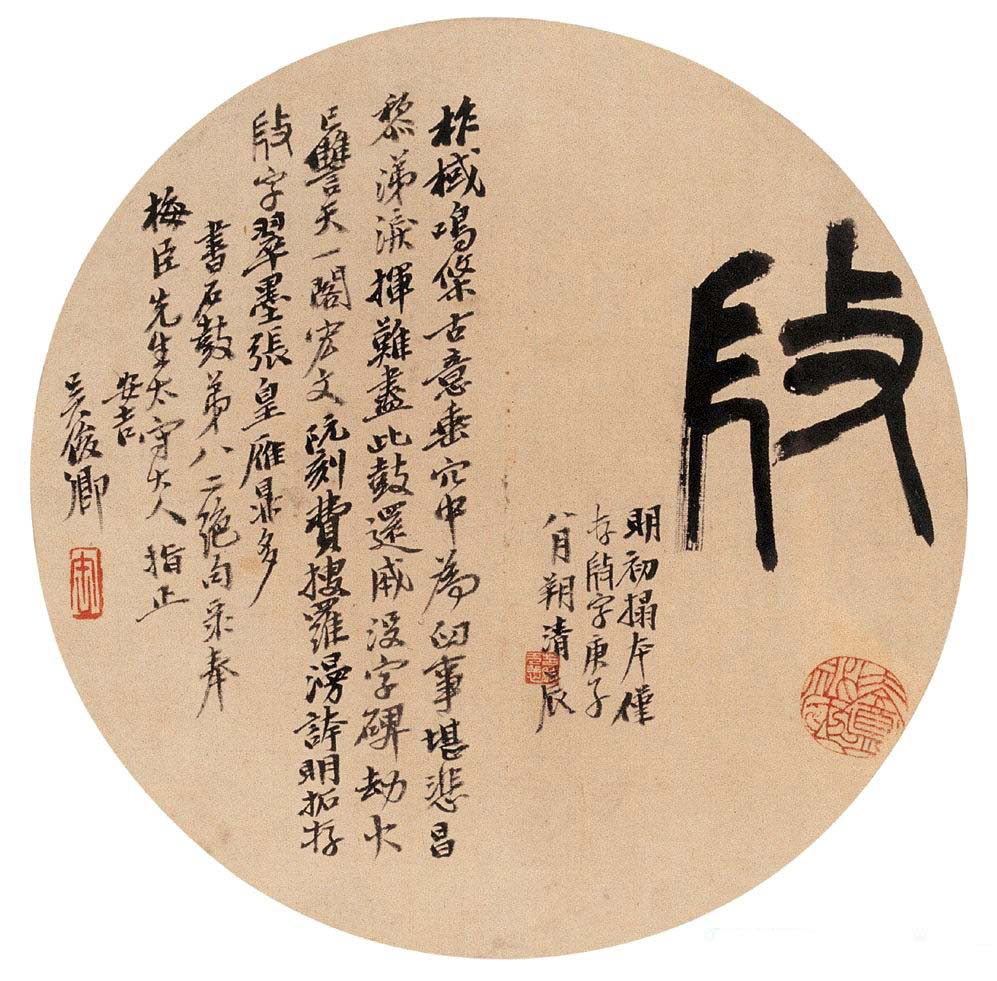 明初搨本僅
存字庚子
八月朔清晨
柞棫鳴條古意垂穴中為臼事堪悲昌
黎涕淚揮難盡此鼓還成没字碑劫火
已讐天一閣宏文阮刻費搜羅漫誇明拓存
字翠墨張皇雁鼎多
書石鼓弟八二絕句录奉
梅臣先生太守大人指正
安吉
吳俊卿